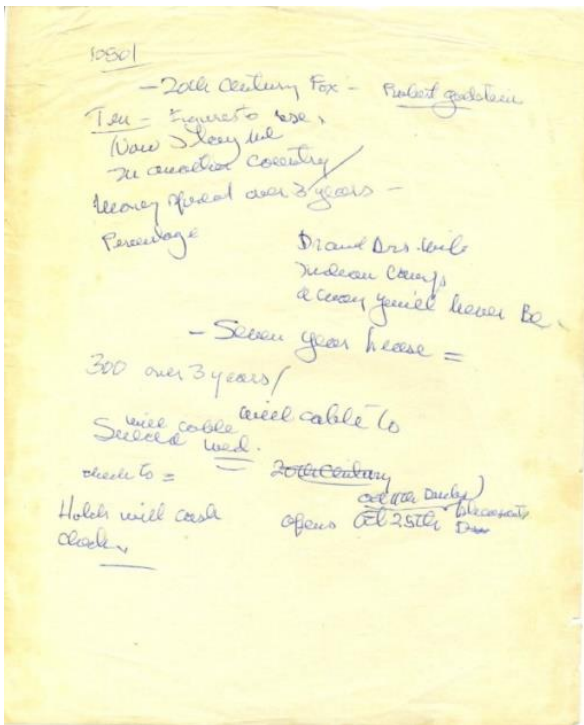 10801
- 20th Century Fox - Robert Goldstein
Ten - Figures to use,
Now
In another Country
Money spread over 3 years -
Percentage
Dr and Drs. wife
Indian Camp
a way you'll never Be.
- Seven year lease =
300 over 3 years/
will cable will cable to
wed.
check to = 20th Century
Hotel will cash opens Oct 25th
check,